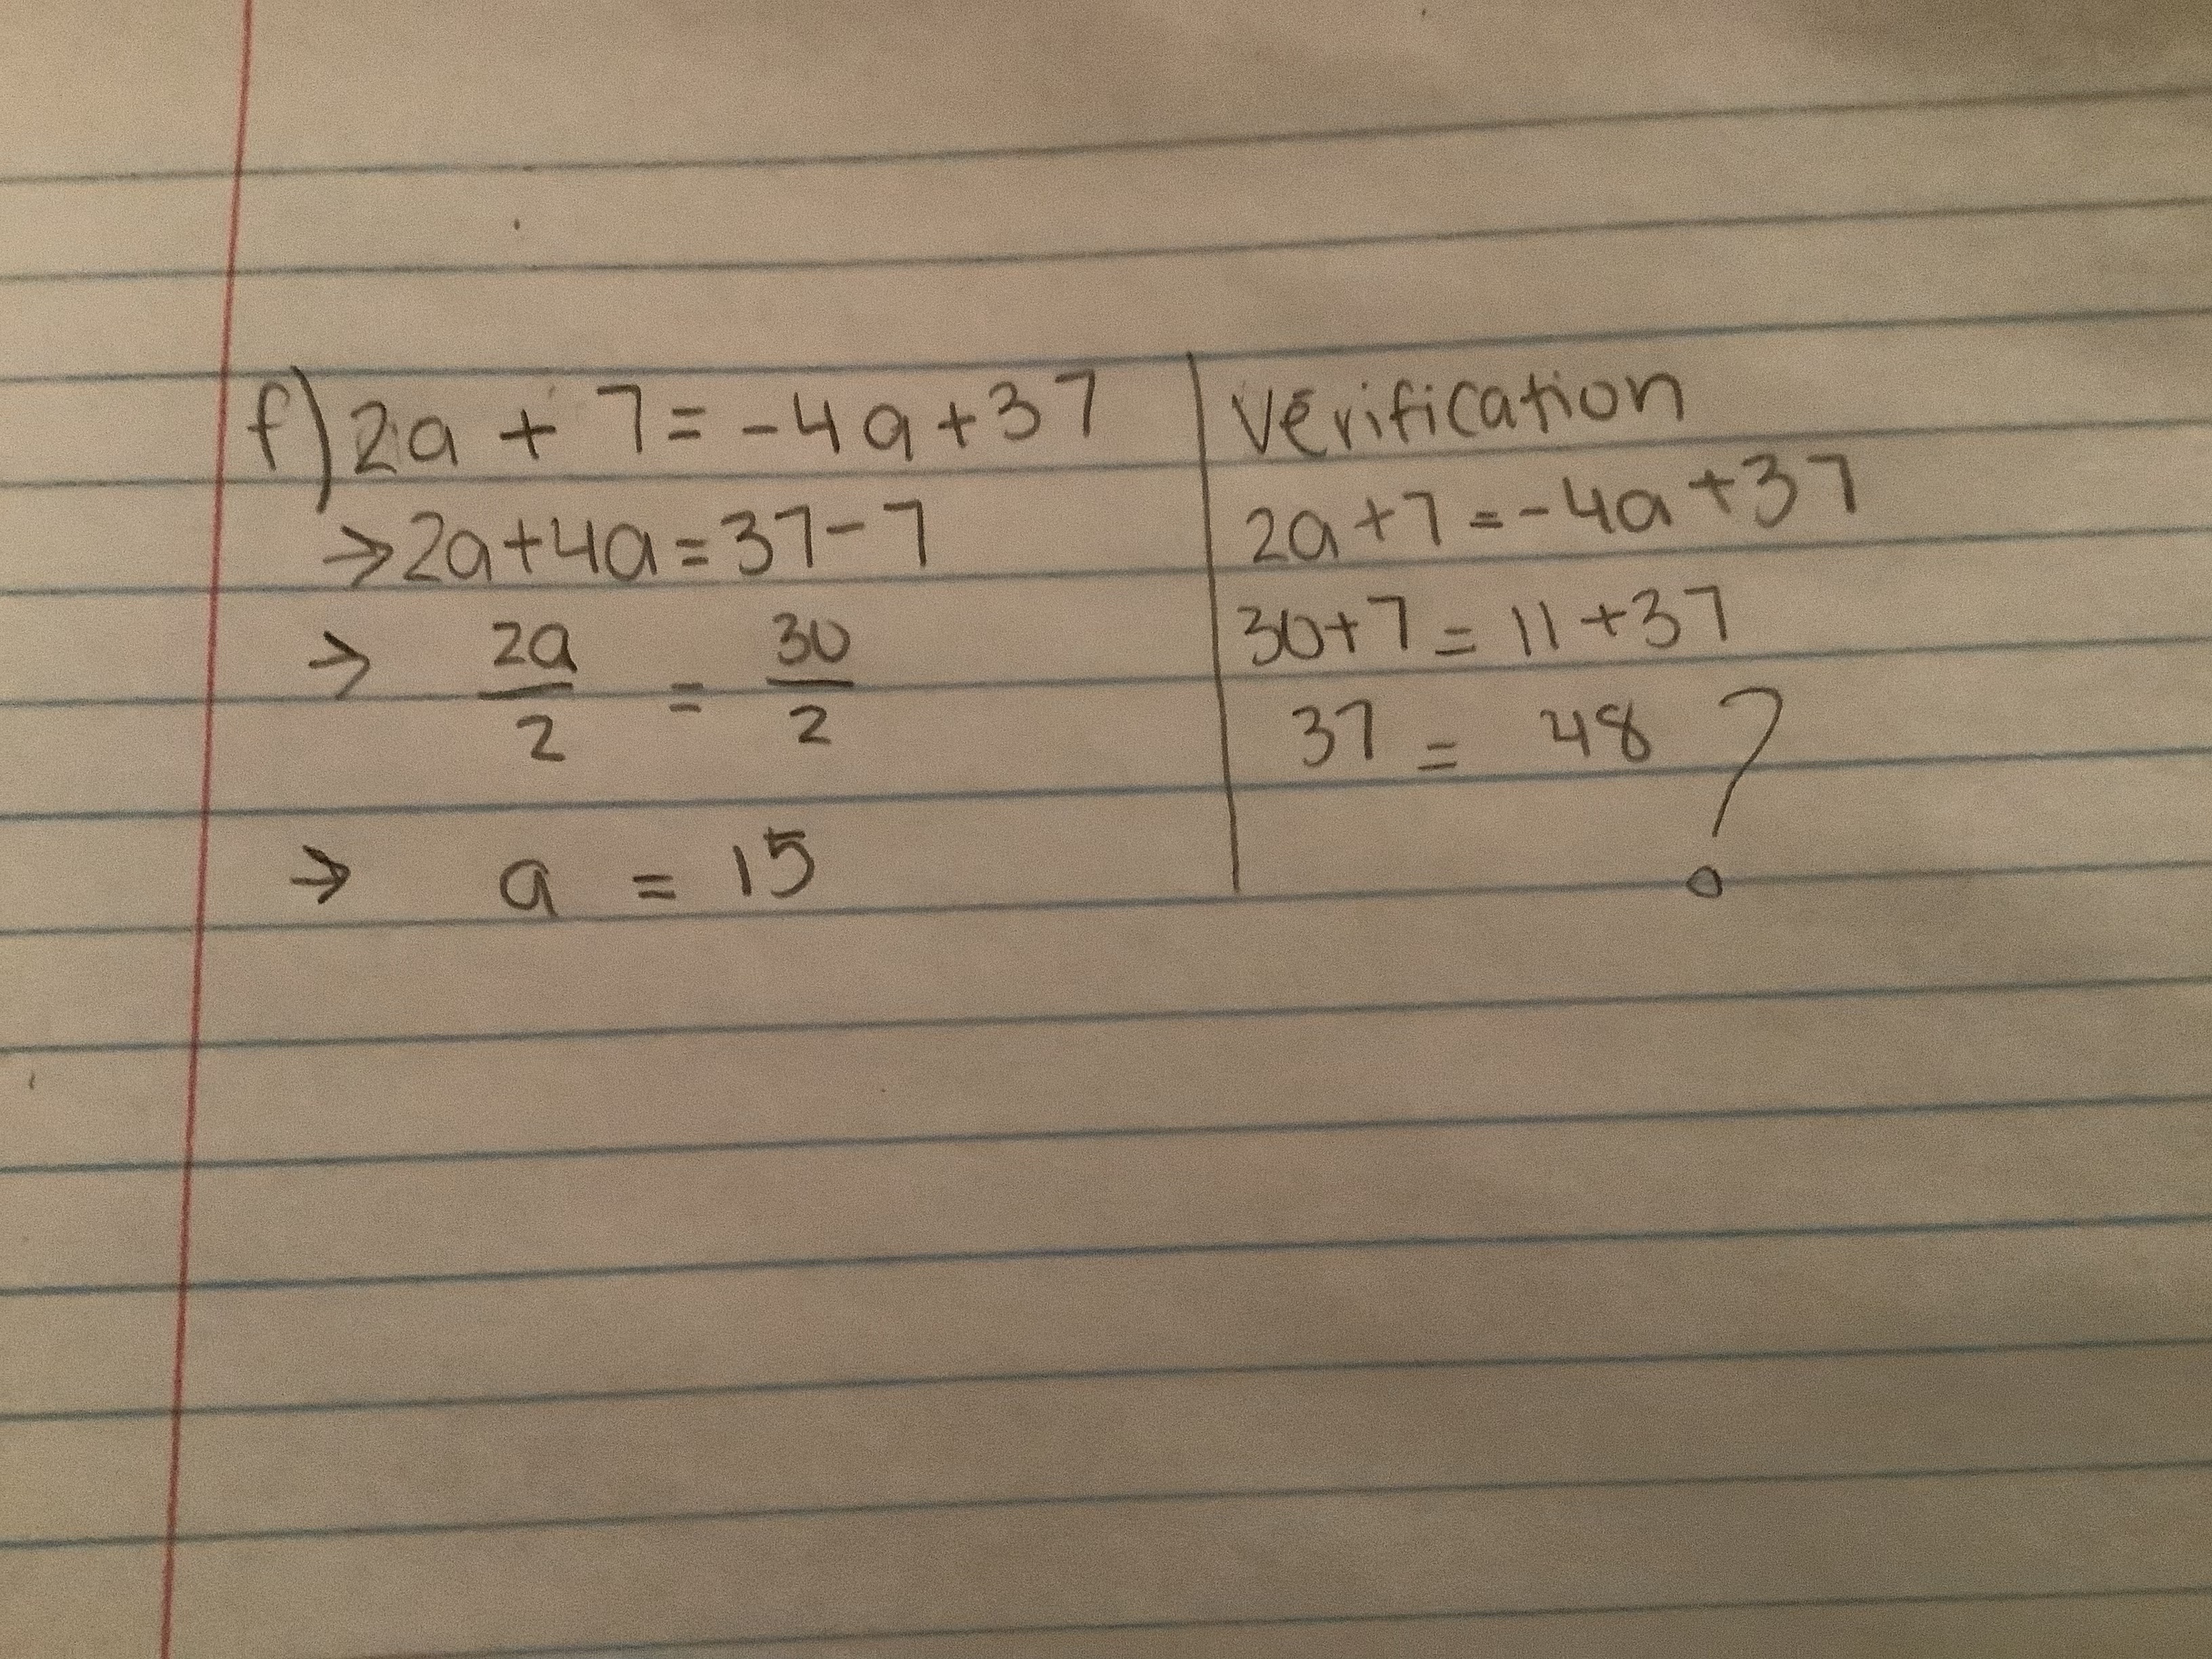 f) 2a + 7 = -4a + 37
→ 2a + 4a = 37 - 7
→ 2a/2 = 30/2
→ a = 15
Verification
2a + 7 = -4a + 37
30 + 7 = 11 + 37
37 = 48 ?